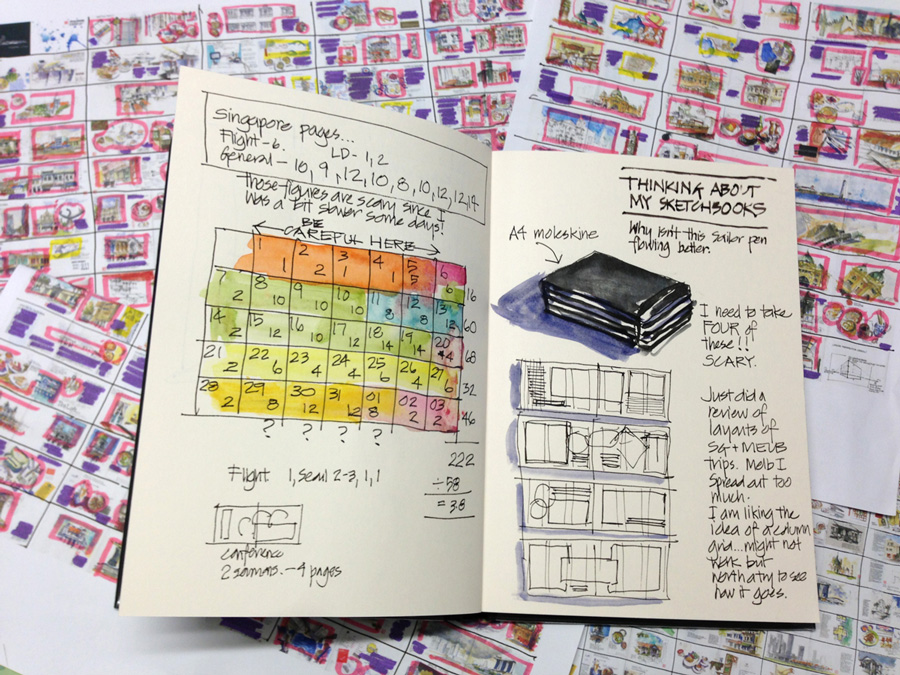 Singapore pages...
Flight - 6. LD - 1, 2
General - 10, 9, 12, 10, 8, 10, 12, 12, 14
Those figures are scary since I
was a bit slower some days!
BE
CAREFUL HERE
1 2 3 4 5 6
1 2 1 1 5 6 16
7 8 9 10 11 12 13
2 10 10 10 8 8 12 60
14 15 16 17 18 19 20
2 12 10 12 14 14 4 68
21 22 23 24 25 26 27
2 6 4 4 6 4 6 32
28 29 30 31 01 02 03
2 8 12 12 8 2 2 46
? ? ? ?
222
÷58
= 3.8
Flight 1, Seoul 2-3, 1, 1
conference
2 seminars. - 4 pages
THINKING ABOUT
MY SKETCHBOOKS
Why isn't this sailor pen
flowing better.
A4 moleskine
I need to take
FOUR of
these!!
SCARY.
Just did a
review of
layouts of
SG + MELB
trips. Melb I
spread out too
much.
I am liking the
idea of a column
grid... might not
work but
worth a try to see
how it goes.